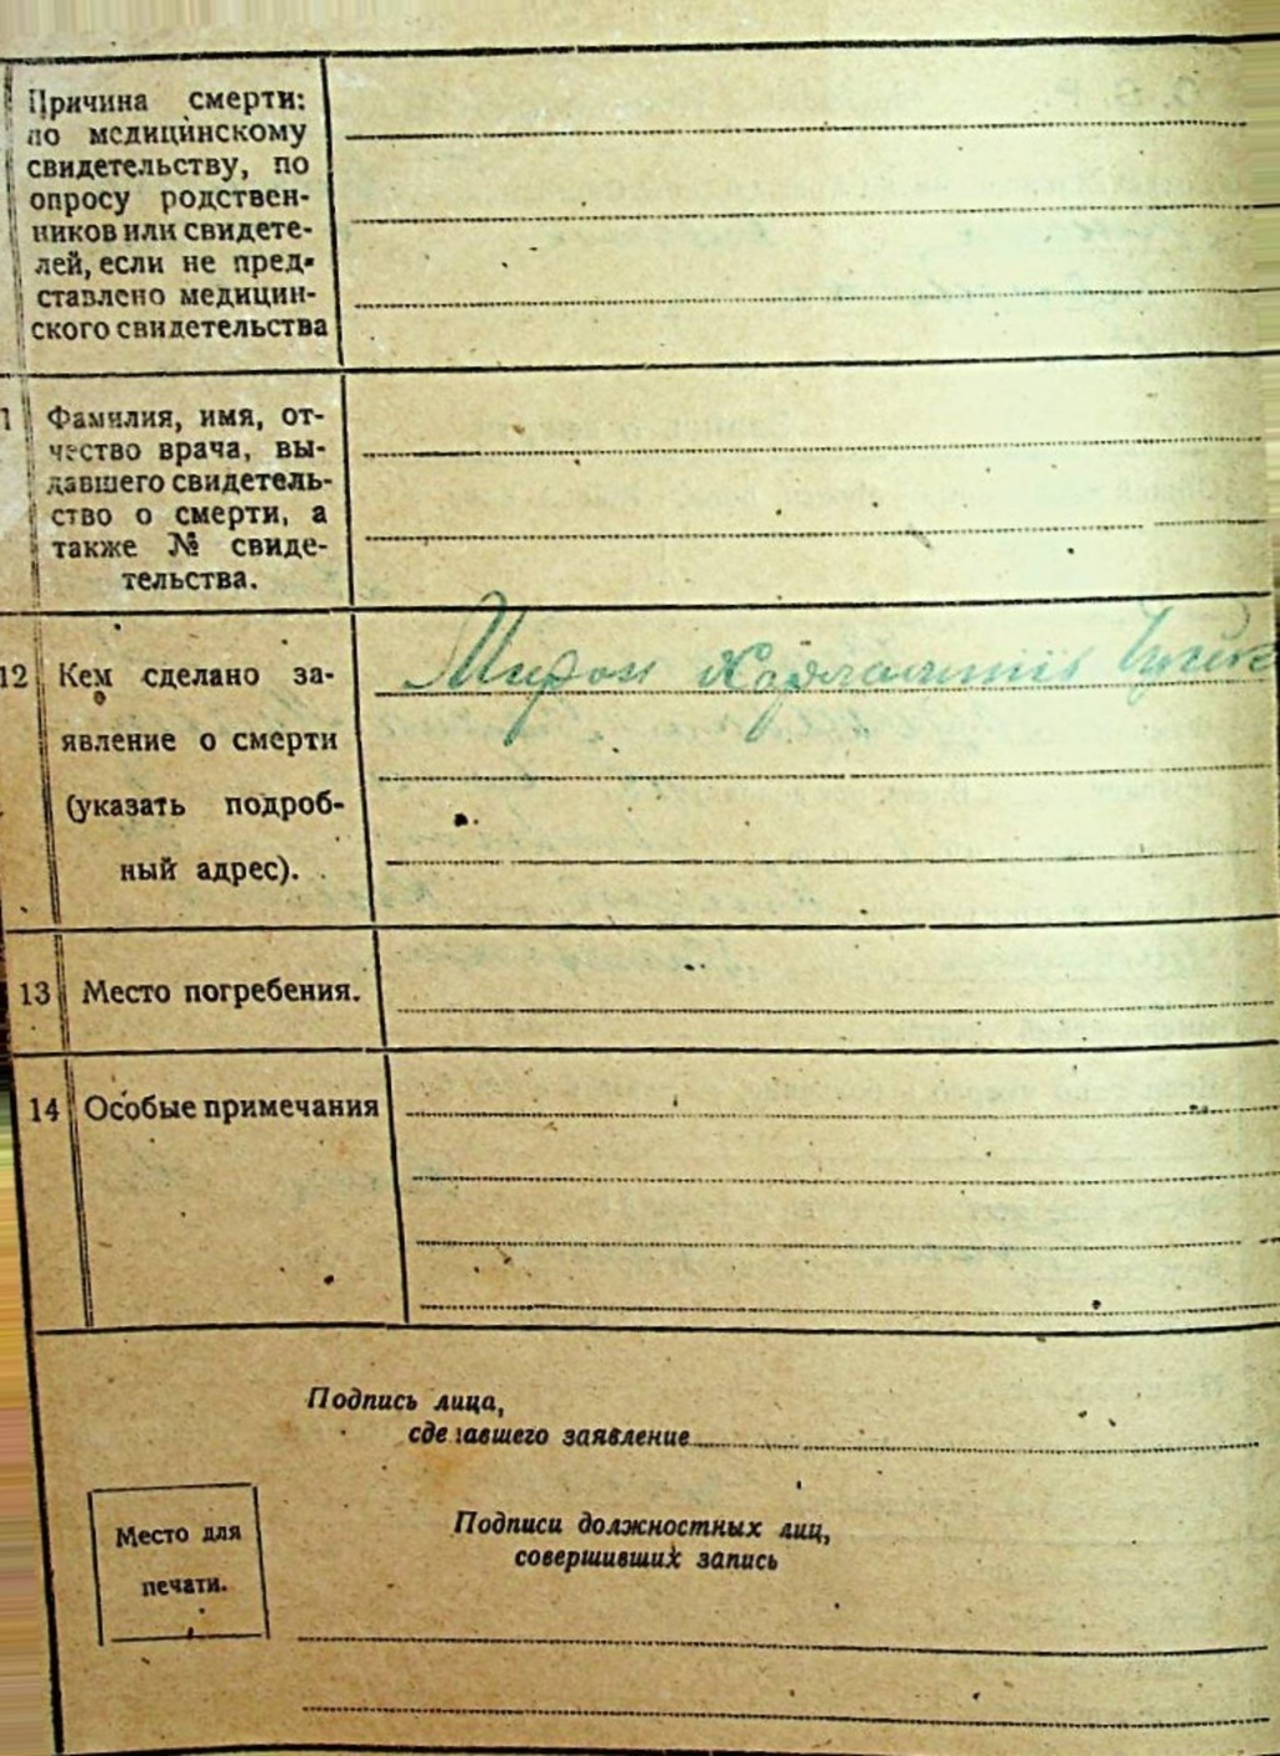 Причина смерти:
по медицинскому
свидетельству, по
опросу родствен-
ников или свидете-
лей, если не пред-
ставлено медицин-
ского свидетельства
1 Фамилия, имя, от-
чество врача, вы-
давшего свидетель-
ство о смерти, а
также № свиде-
тельства.
12 Кем сделано за- Мирон
явление о смерти
(указать подроб-
ный адрес).
13 Место погребения.
14 Особые примечания
Подпись лица,
сделавшего заявление
Место для
печати.
Подписи должностных лиц,
совершивших запись